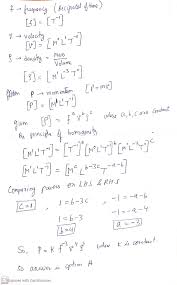 f → frequency (Reciprocal of time)
[f] = [T⁻¹]
v → velocity
[v] = [M⁰L¹T⁻¹]
ρ → density = Mass / Volume
[ρ] = [M¹L⁻³T⁰]
P → momentum [P = mv]
[P] = [M¹L¹T⁻¹]
given [P] = fᵃ vᵇ ρᶜ where a, b, c are constant
principle of homogeneity
[M¹L¹T⁻¹] = [T⁻¹]ᵃ [M⁰L¹T⁻¹]ᵇ [M¹L⁻³T⁰]ᶜ
[M¹L¹T⁻¹] = [Mᶜ Lᵇ⁻³ᶜ T⁻ᵃ⁻ᵇ]
Comparing powers on L.H.S & R.H.S
c=1, 1 = b-3c, -1 = -a-b
1 = b-3, -1 = -a-4
b=4, a = -3
So, P = K f⁻³ v⁴ ρ¹ where K is constant
So answer is option A
Scanned with CamScanner